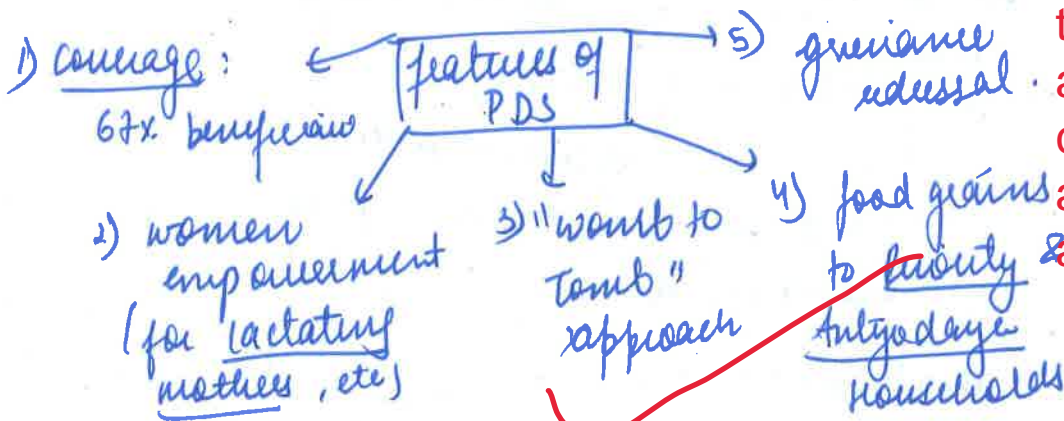 features of
PDS
1) coverage :
67% beneficiary
2) women
empowerment
(for lactating
mothers, etc)
3) "womb to
Tomb"
approach
4) food grains
to priority &
Antyodaya
Households
5) grievance
redressal.